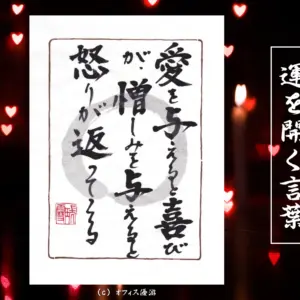 運を開く言葉
愛を与えると喜び
が、憎しみを与えると
怒りが返ってくる
(c) オフィス優游